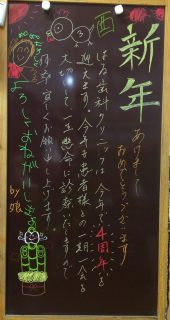 新年
あけまして
おめでとうございます
酉
はる歯科クリニックは今年で4周年を
迎えます。今年も患者様との一期一会を
大切にして一生懸命に診察いたしますので
何卒宜しくお願い申し上げます
よろしくおねがいします
by娘